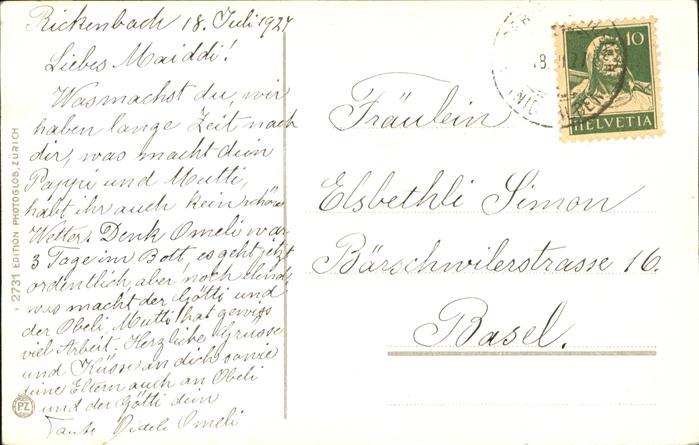 Rickenbach 18. Juli 1927
Liebes Maiddi!
Wasmachst du, wir
haben lange Zeit nach
dir, was macht dein
Pappi und Mutti,
habt ihr auch kein schönes
Wetter. Denk Omeli war
3 Tage im Bett, es geht jetzt
ordentlich, aber noch elend,
was macht der Götti und
der Obeli, Mutti hat gewiss
viel Arbeit. Herzliche Grüsse
und Küsse an dich sowie
deine Eltern auch an Obeli
und der Götti dein
Tante Omeli
Fräulein
Elsbethli Simon
Bärschwilerstrasse 16.
Basel.
10
HELVETIA
2731 EDITION PHOTOGLOB, ZÜRICH
PZ